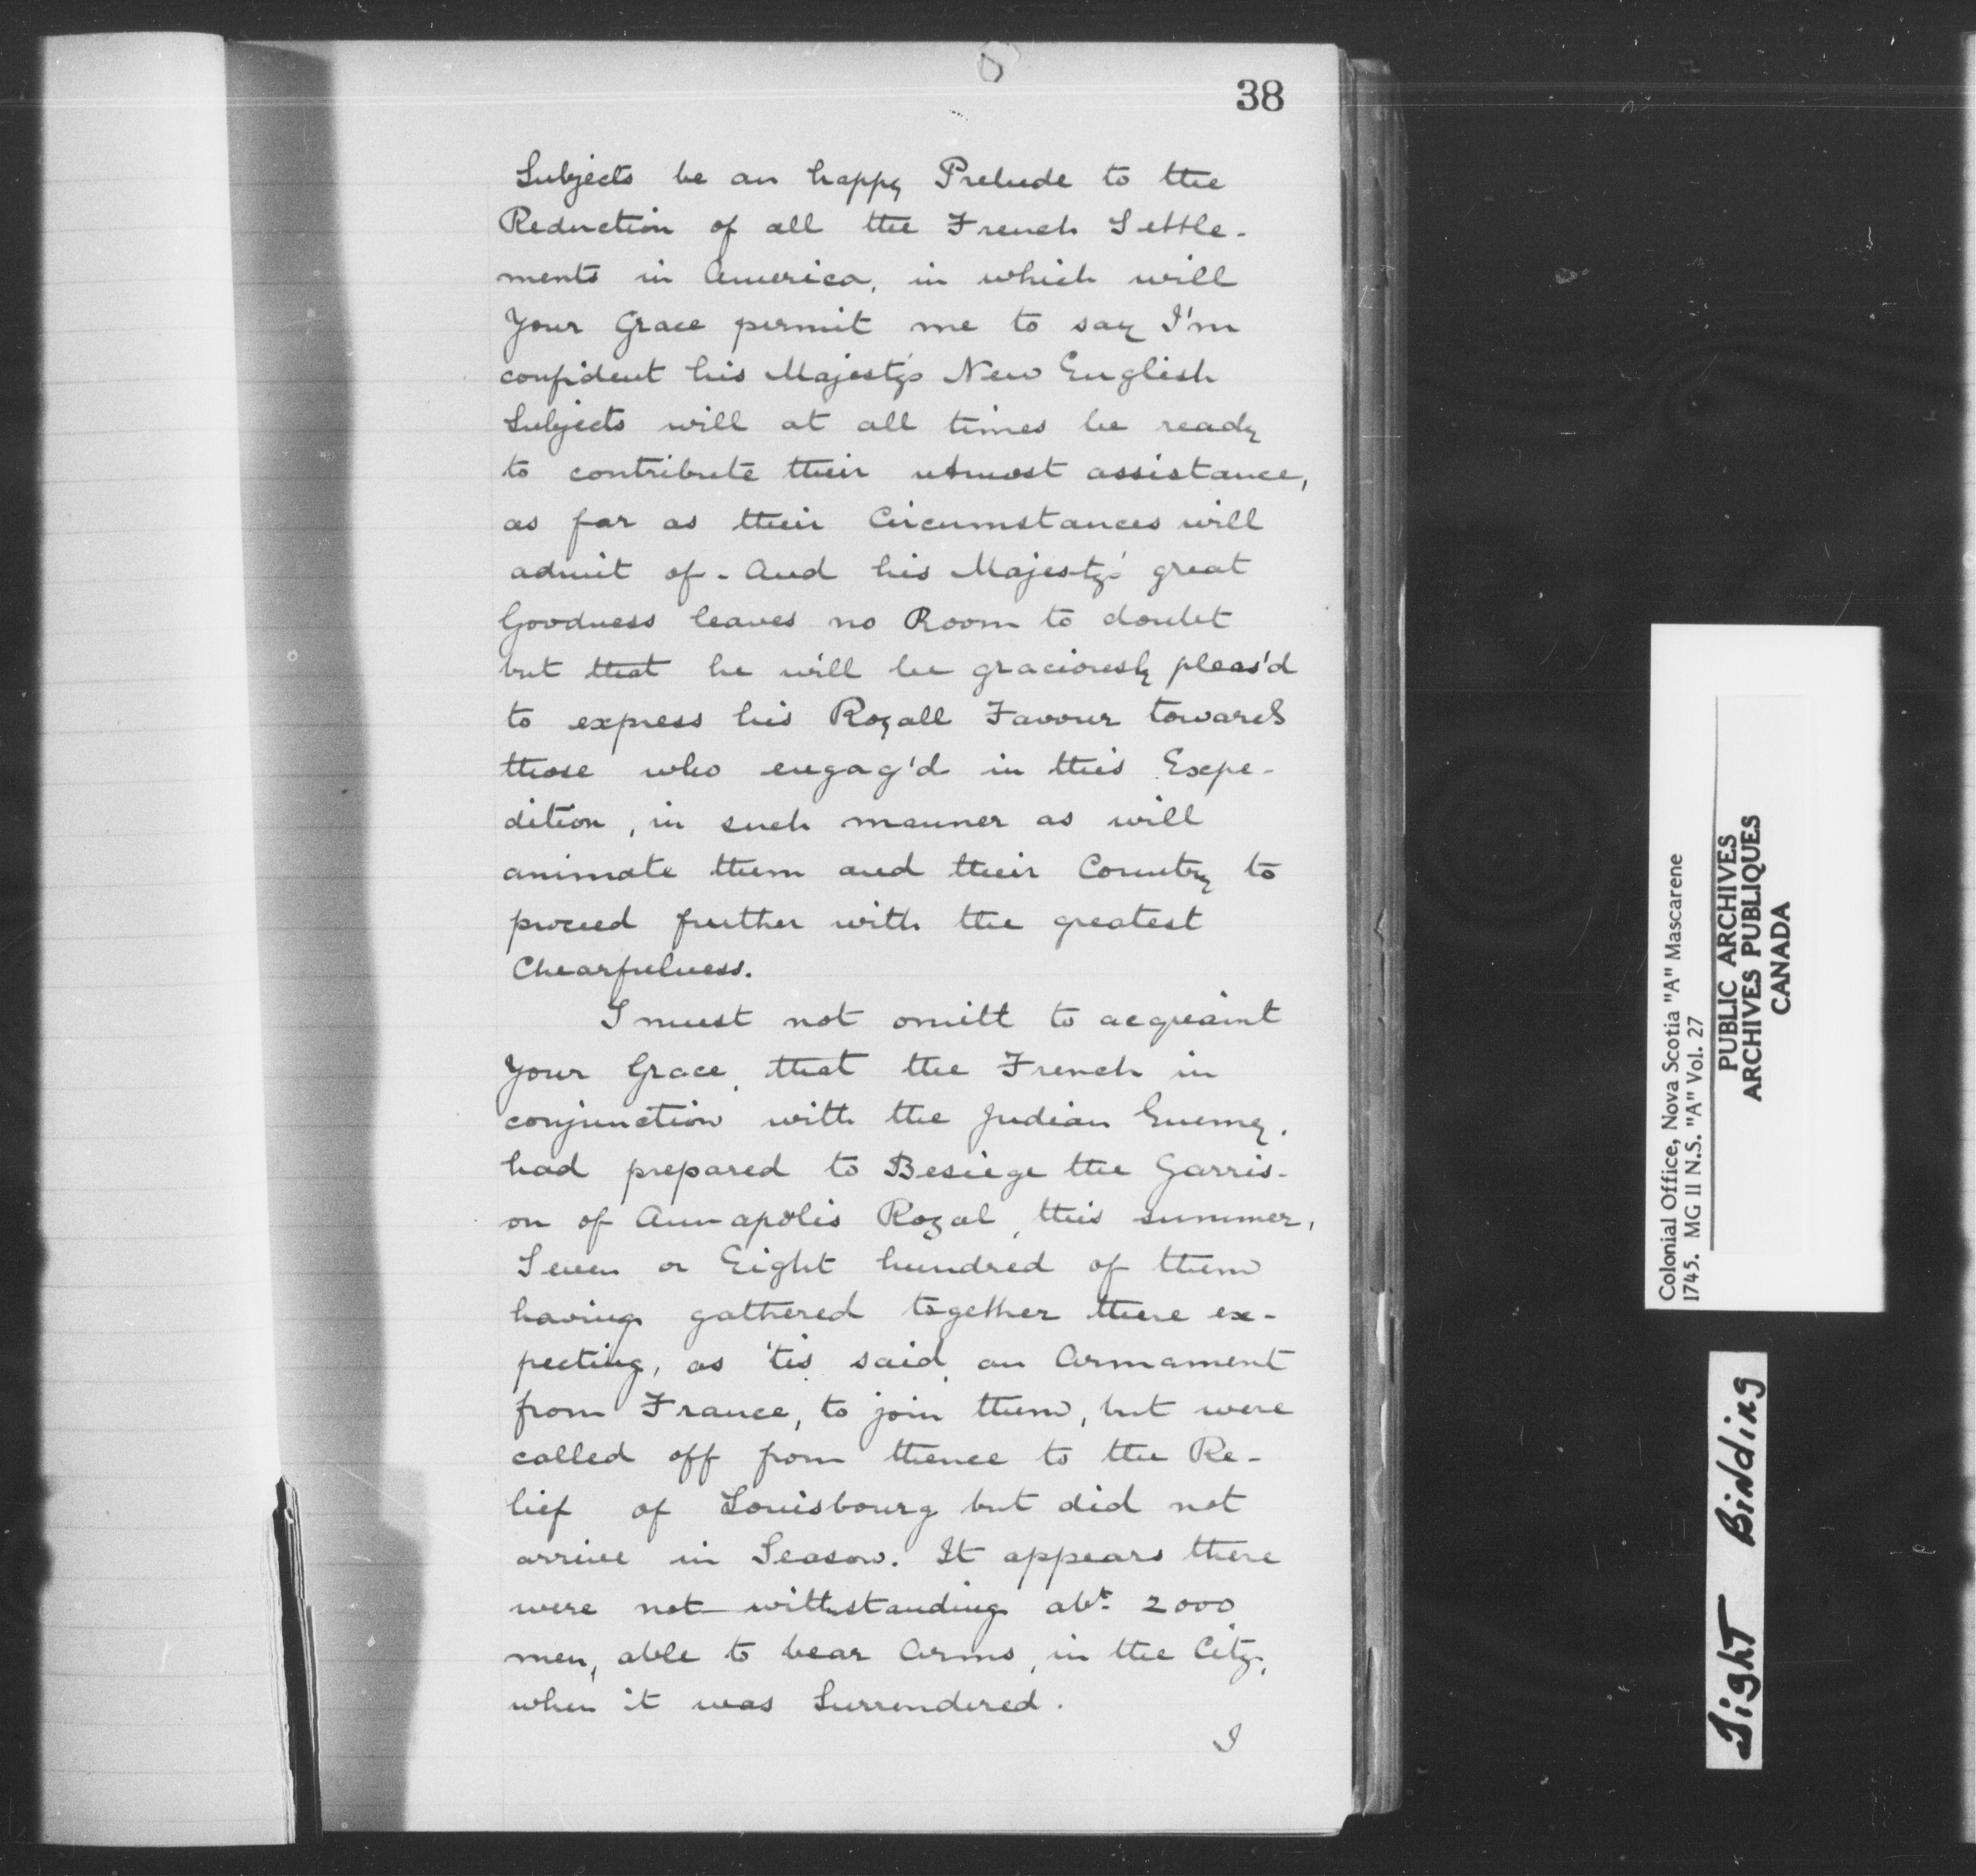 38
Subjects be an happy Prelude to the
Reduction of all the French Settle-
ments in America, in which will
Your Grace permit me to say I'm
confident his Majesty's New English
Subjects will at all times be ready
to contribute their utmost assistance,
as far as their Circumstances will
admit of. And his Majesty's great
Goodness leaves no Room to doubt
but that he will be graciously pleas'd
to express his Royall Favour towards
those who engag'd in this Expe-
dition, in such manner as will
animate them and their Country to
proceed further with the greatest
Chearfulness.
I must not omitt to acquaint
Your Grace, that the French in
conjunction with the Indian Enemy,
had prepared to Besiege the Garris-
on of Annapolis Royal, this summer,
Seven or Eight hundred of them
having gathered together there ex-
pecting, as 'tis said, an Armament
from France, to join them, but were
called off from thence to the Re-
lief of Louisbourg but did not
arrive in Season. It appears there
were not withstanding abt. 2000
men, able to bear Arms, in the City,
when it was Surrendered.
I
Colonial Office, Nova Scotia "A" Mascarene
1745. MG 11 N.S. "A" Vol. 27
PUBLIC ARCHIVES
ARCHIVES PUBLIQUES
CANADA
Tight Binding